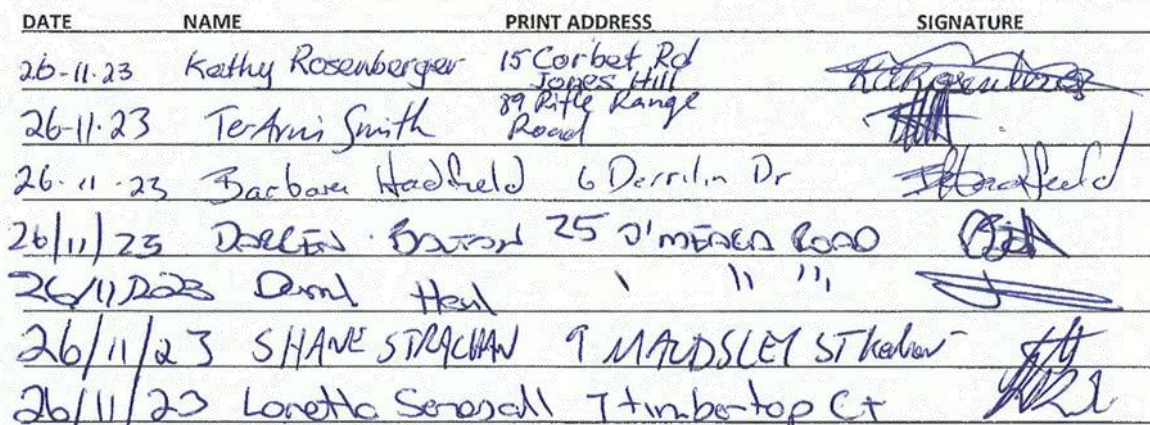 DATE NAME PRINT ADDRESS SIGNATURE
26-11-23 Kathy Rosenberger 15 Corbet Rd
Jones Hill
26-11-23 Te-Arni Smith 89 Rifle Range
Road
26-11-23 Barbara Hadfield 6 Derrilin Dr
26/11/23 DARREN BOLTON 25 O'MEARA ROAD
26/11/2023 " " "
26/11/23 SHANE STRACHAN 9 MAUDSLEY ST
26/11/23 Loretta 7 timbertop Ct